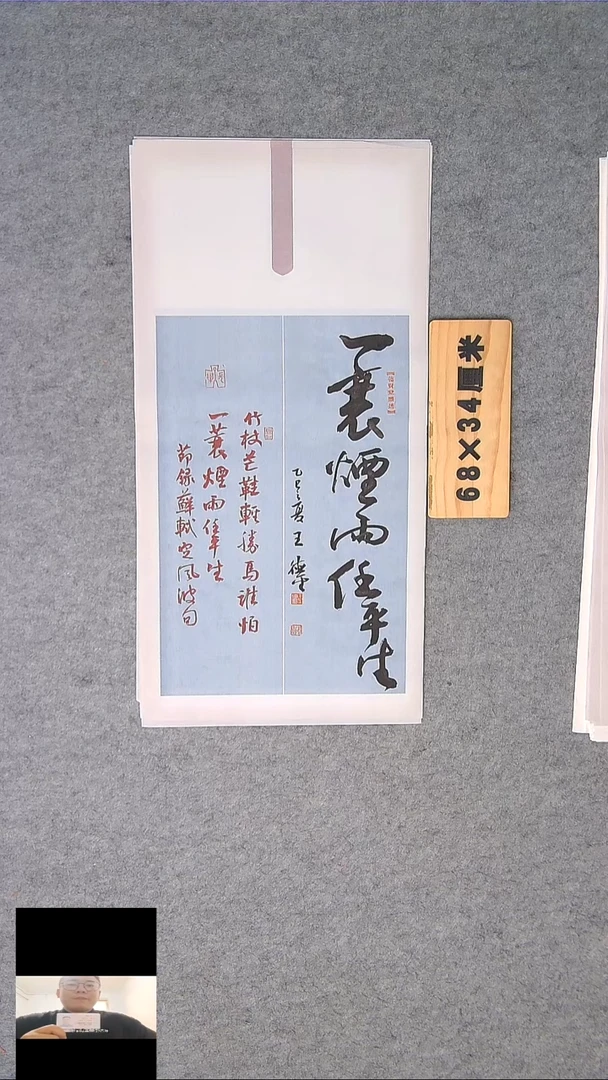 一蓑煙雨任平生
乙巳夏王
竹杖芒鞋輕勝馬誰怕
一蓑煙雨任平生
節錄蘇軾定風波句
68×34厘米